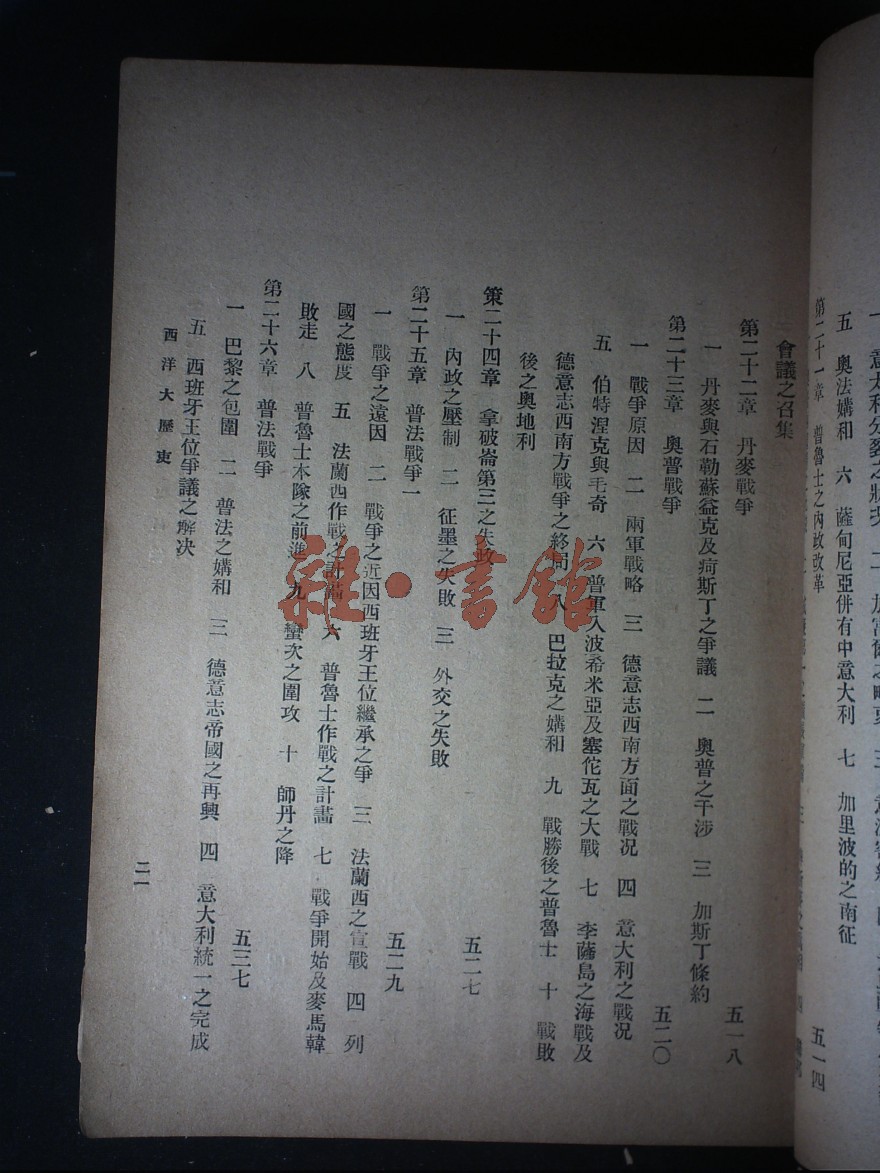 五 奧法媾和 六 薩甸尼亞併有中意大利 七 加里波的之南征
第二十一章 普魯士之內政改革
五一四
會議之召集
第二十二章 丹麥戰爭
五一八
一 丹麥與石勒蘇益克及荷斯丁之爭議 二 奧普之干涉 三 加斯丁條約
第二十三章 奧普戰爭
五二〇
一 戰爭原因 二 兩軍戰略 三 德意志西南方面之戰况 四 意大利之戰况
五 伯特涅克與毛奇 六 普軍入波希米亞及塞佗瓦之大戰 七 李薩島之海戰及
德意志西南方戰爭之終局 八 巴拉克之媾和 九 戰勝後之普魯士 十 戰敗
後之奧地利
策二十四章 拿破崙第三之失政
五二七
一 內政之壓制 二 征墨之失敗 三 外交之失敗
第二十五章 普法戰爭一
五二九
一 戰爭之遠因 二 戰爭之近因西班牙王位繼承之爭 三 法蘭西之宣戰 四 列
國之態度 五 法蘭西作戰之計畫 六 普魯士作戰之計畫 七 戰爭開始及麥馬韓
敗走 八 普魯士本隊之前進 九 蠻次之圍攻 十 師丹之降
第二十六章 普法戰爭
五三七
一 巴黎之包圍 二 普法之媾和 三 德意志帝國之再興 四 意大利統一之完成
五 西班牙王位爭議之解决
西洋大歷史
二一
雜·書館